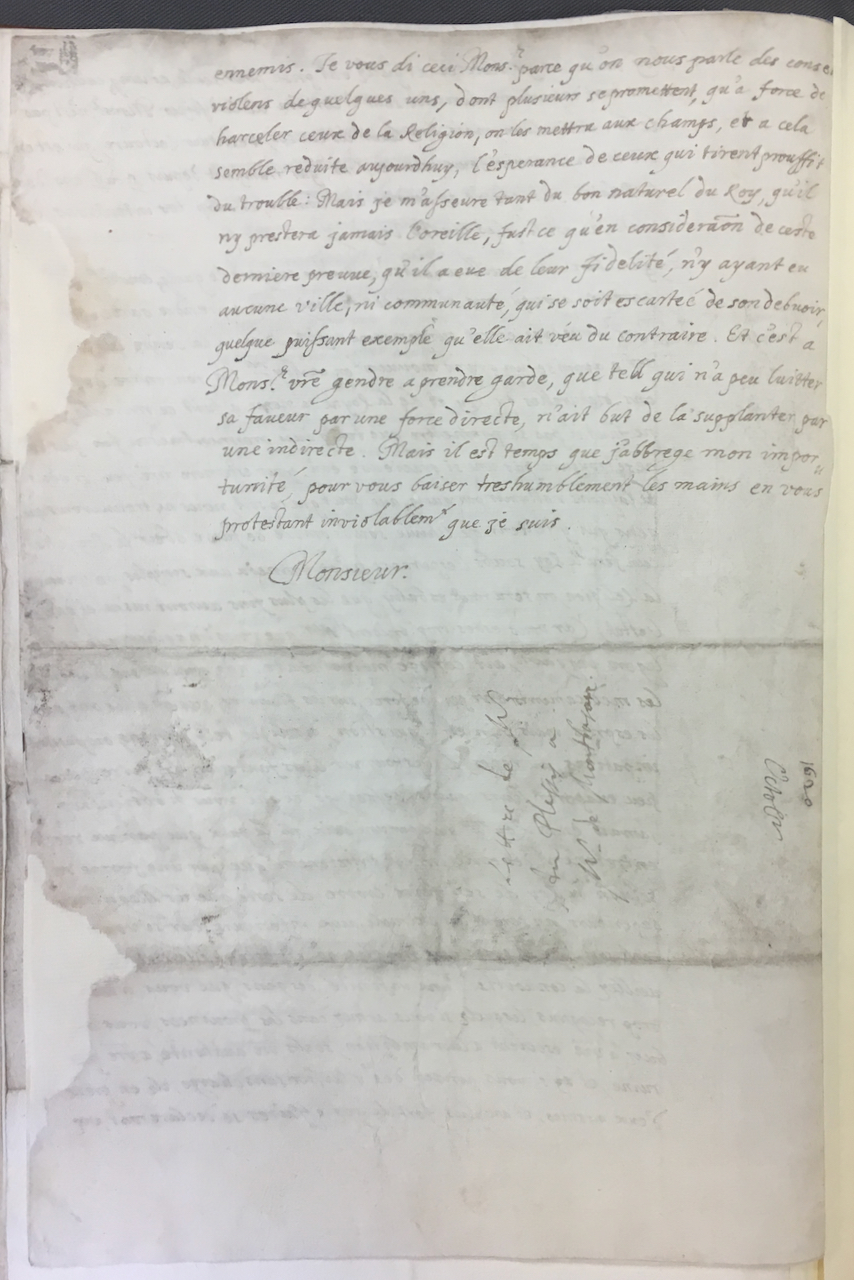 ennemis. Je vous di ceci Mons.r parce qu'on nous parle des conse
violens de quelques uns, dont plusieurs se promettent, qu'a force de
harceler ceux de la Religion, on les mettra aux champs, et a cela
semble reduite aujourdhuy, l'esperance de ceux qui tirent prouffit
du trouble: Mais je m'asseure tant du bon naturel du Roy, qu'il
ny prestera jamais l'oreille, fust ce qu'en consideraõn de ceste
derniere preuve, qu'il a eue de leur fidelité, n'y ayant eu
aucune ville, ni communauté, qui se soit escarteé de son debuoir,
quelque puissant exemple qu'elle ait veu du contraire. Et c'est a
Mons.r vre gendre a prendre garde, que tell qui n'a peu luitter
sa faveur par une force directe, n'ait but de la supplanter par
une indirecte. Mais il est temps que j'abbrege mon impor
tunité, pour vous baiser treshumblement les mains en vous
protestant inviolablem.t que je suis.
Monsieur.
lettre de
du Plessis a
Mr de Montbazon.
1620
Octobr